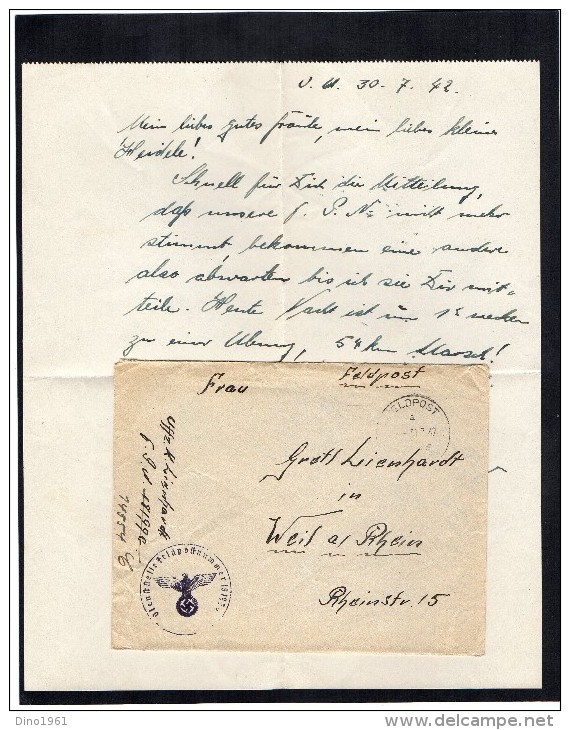 O. U. 30. 7. 42.
Mein liebes gutes Fraule, mein liebes kleines
Heidele!
Schnell für Dir die Mitteilung,
daß unsere F. P. Nr nicht mehr
stimmt, bekommen eine andere
also abwarten bis ich sie Dir mit-
teile. Heute Nacht ist um 1² wecken
zu einer Übung, 54 km Marsch!
Feldpost
Frau
FELDPOST
Gretl Lienhardt
in
Weil a/ Rhein
Rheinstr. 15
Uffz. K. Lienhardt
F. P. N.
Dienststelle Feldpostnummer
Dino1961
delcampe.net